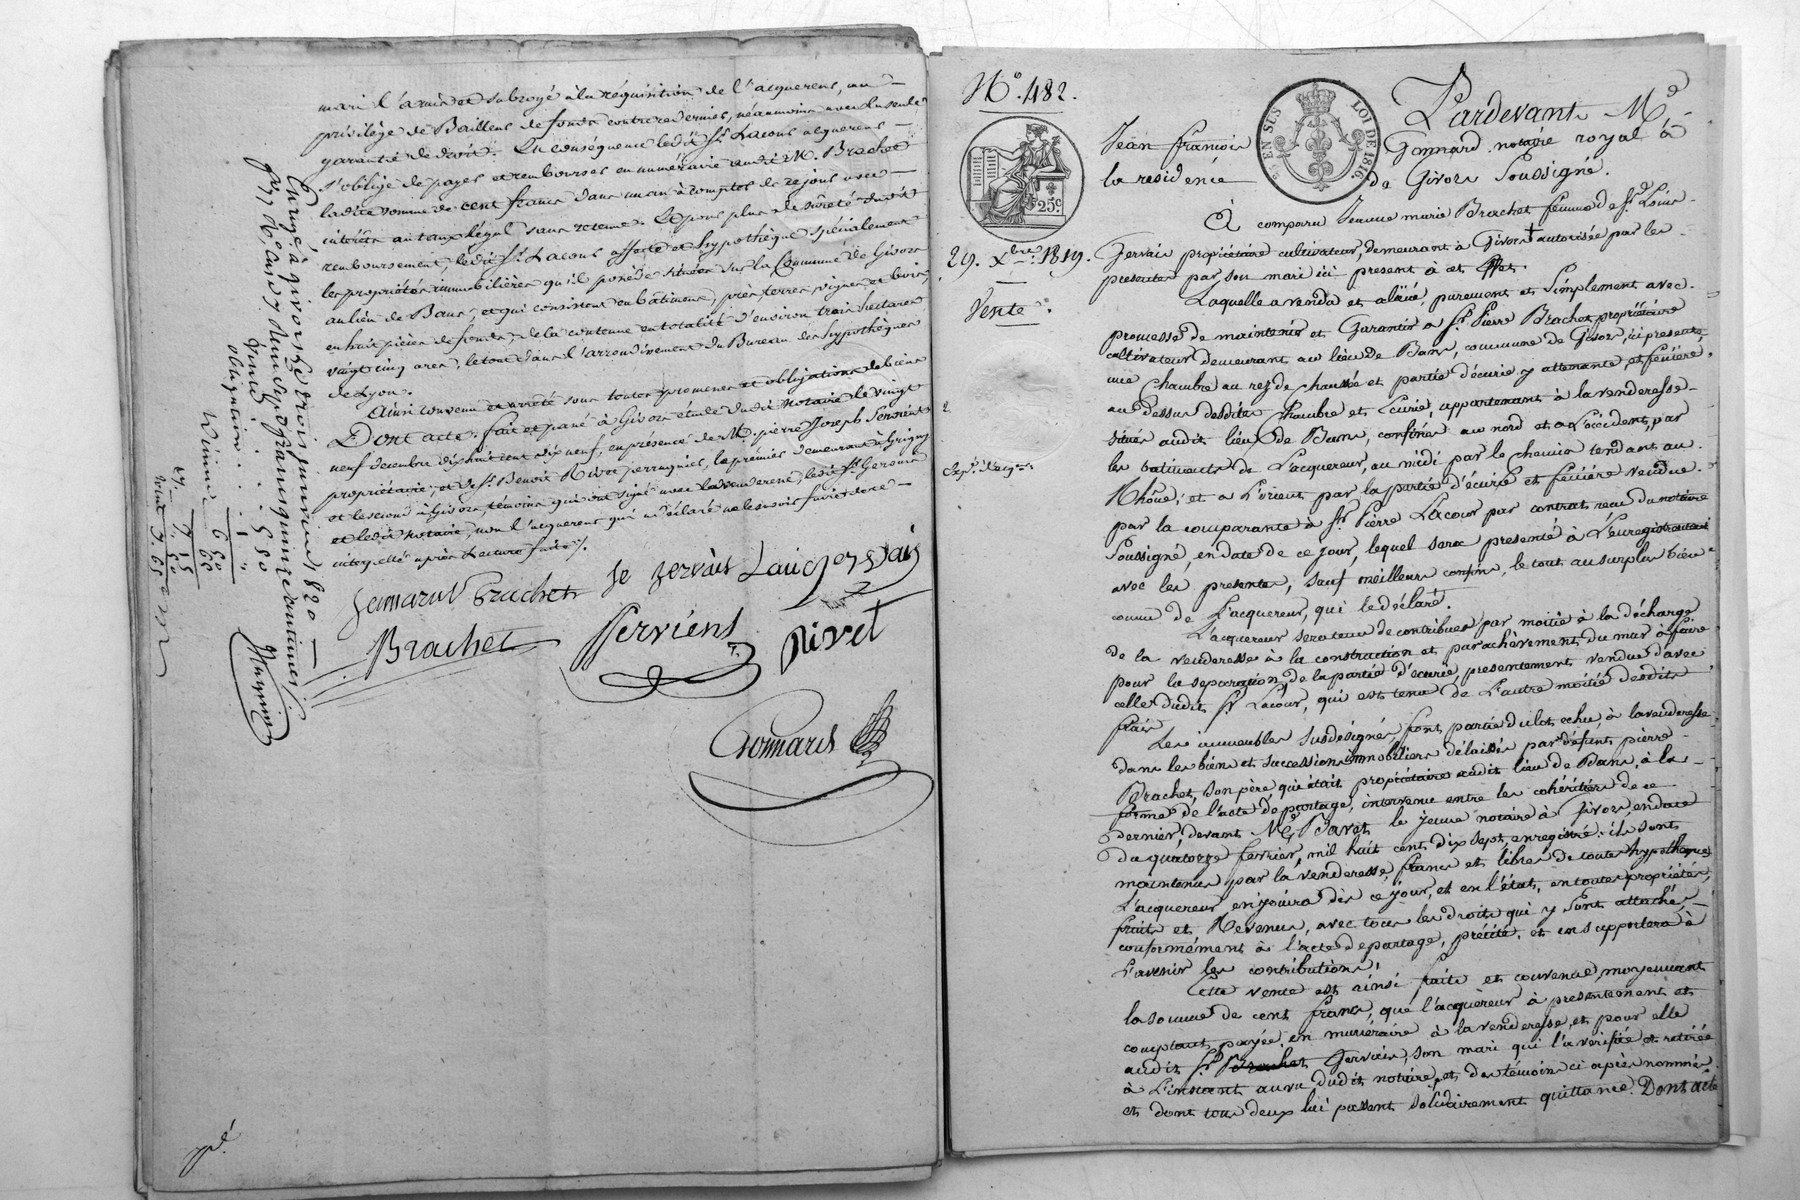 mari l'a mis et subrogé à la réquisition de l'acquereur, au
privilége de Bailleur de fonds contre ce dernier, néanmoins avec la seule
garantie de droit. En conséquence ledit Sr. Lacour acquereur
s'oblige de payer et rembourser en numéraire audit M. Brachet
ladite somme de cent francs dans un an à compter de ce jour avec
intérêts au taux légal sans retenue. Et pour plus de sûreté dudit
remboursement, ledit Sr. Lacour affecte et hypothèque spécialement
les propriétés immobilières qu'il possède situées sur la Commune de Givors
au lieu de Bans, et qui consistent en bâtiments, près, terres, vignes et bois,
en huit pièces de fonds, de la contenue en totalité d'environ trois hectares
vingt cinq ares, le tout dans l'arrondissement du Bureau des hypothèques
de Lyon.
Ainsi convenu et arrêté sous toutes promesses et obligations de biens
Dont acte, fait et passé à Givors étude dudit notaire le vingt
neuf decembre dix huit cent dix neuf, en présence de M. pierre Joseph Servient
propriétaire, et de Sr. Benoit Rivet perruquier, le premier demeurant à Grigny
et le second à Givors, témoins qui ont signé avec la venderesse, ledit Sr. Gervais
et ledit notaire, non l'acquereur qui a déclaré ne le savoir faire de ce
interpellé après lecture faite.
Janmarie Brachet fe gervais Louis gervais
Brachet Serviens Rivet
Gonnard
Enregé à givors le trois janvier 1820
Vente 5 50
obligation 1 "
6 50
Décime 65
7 15
N° 482.
EN SUS
LOI DE 1816.
25c
Pardevant Me
Jean françois Gonnard notaire royal à
la residence de Givors Soussigné.
29. Xbre 1819.
Vente
A comparu Jeanne marie Brachet femme de Sr. Louis
Gervais propriétaire cultivateur, demeurant à Givors + autorisée par les
presentes par son mari ici present à cet effet.
Laquelle a vendu et aliéné, purement et simplement avec
promesse de maintenir et Garantir à Sr. Pierre Brachet propriétaire
cultivateur demeurant au lieu de Bans, commune de Givors, ici present,
une chambre au rez de chaussée et partie d'écurie y attenante, et feniere
au dessus desdites chambre et Ecurie, appartenant à la venderesse
situés audit lieu de Bans, confinés au nord et à l'occident, par
les batiments de l'acquereur, au midi par le chemin tendant au
Rhône; et à l'orient par la partie d'écurie et fenière vendue
par la comparante à Sr. Pierre Lacour par contrat recu du notaire
Soussigné, en date de ce jour, lequel sera presenté à l'enregistrement
avec les presentes, sauf meilleurs confins, le tout au surplus bien
connu de l'acquereur, qui le déclare.
L'acquereur sera tenu de contribuer par moitié à la décharge
de la venderesse à la construction et parachèvement du mur à faire
pour la separation de la partie d'écurie, presentement vendue d'avec
celle dudit Sr. Lacour, qui est tenu de l'autre moitié desdits
frais.
Les immeubles susdesignés, font partie du lot echu à la venderesse
dans les biens et successions immobiliers délaissés par défunt pierre
Brachet, son père qui était propriétaire audit lieu de Bans, à la
forme de l'acte de partage, intervenu entre les cohéritiers de ce
dernier, devant Me Bavet le jeune notaire à Givors, en date
du quatorze fevrier, mil huit cent dix sept, enregistré. ils sont
maintenus par la venderesse, francs et libres de toutes hypothèques
L'acquereur en jouira dès ce jour, et en l'état, en toutes propriétés,
fruits et Revenus, avec tous les droits qui y sont attachés,
conformément à l'acte de partage, précité, et en supportera à
l'avenir les contributions.
Cette vente est ainsi faite et convenue moyennant
la somme de cent francs, que l'acquéreur à presentement et
comptant payée en numéraire à la venderesse, et pour elle
audit Sr Brachet Gervais, son mari qui l'a vérifiée et retirée
à l'instant au vu dudit notaire, et des témoins ci après nommés
et dont tous deux lui passent solidairement quittance. Dont acte